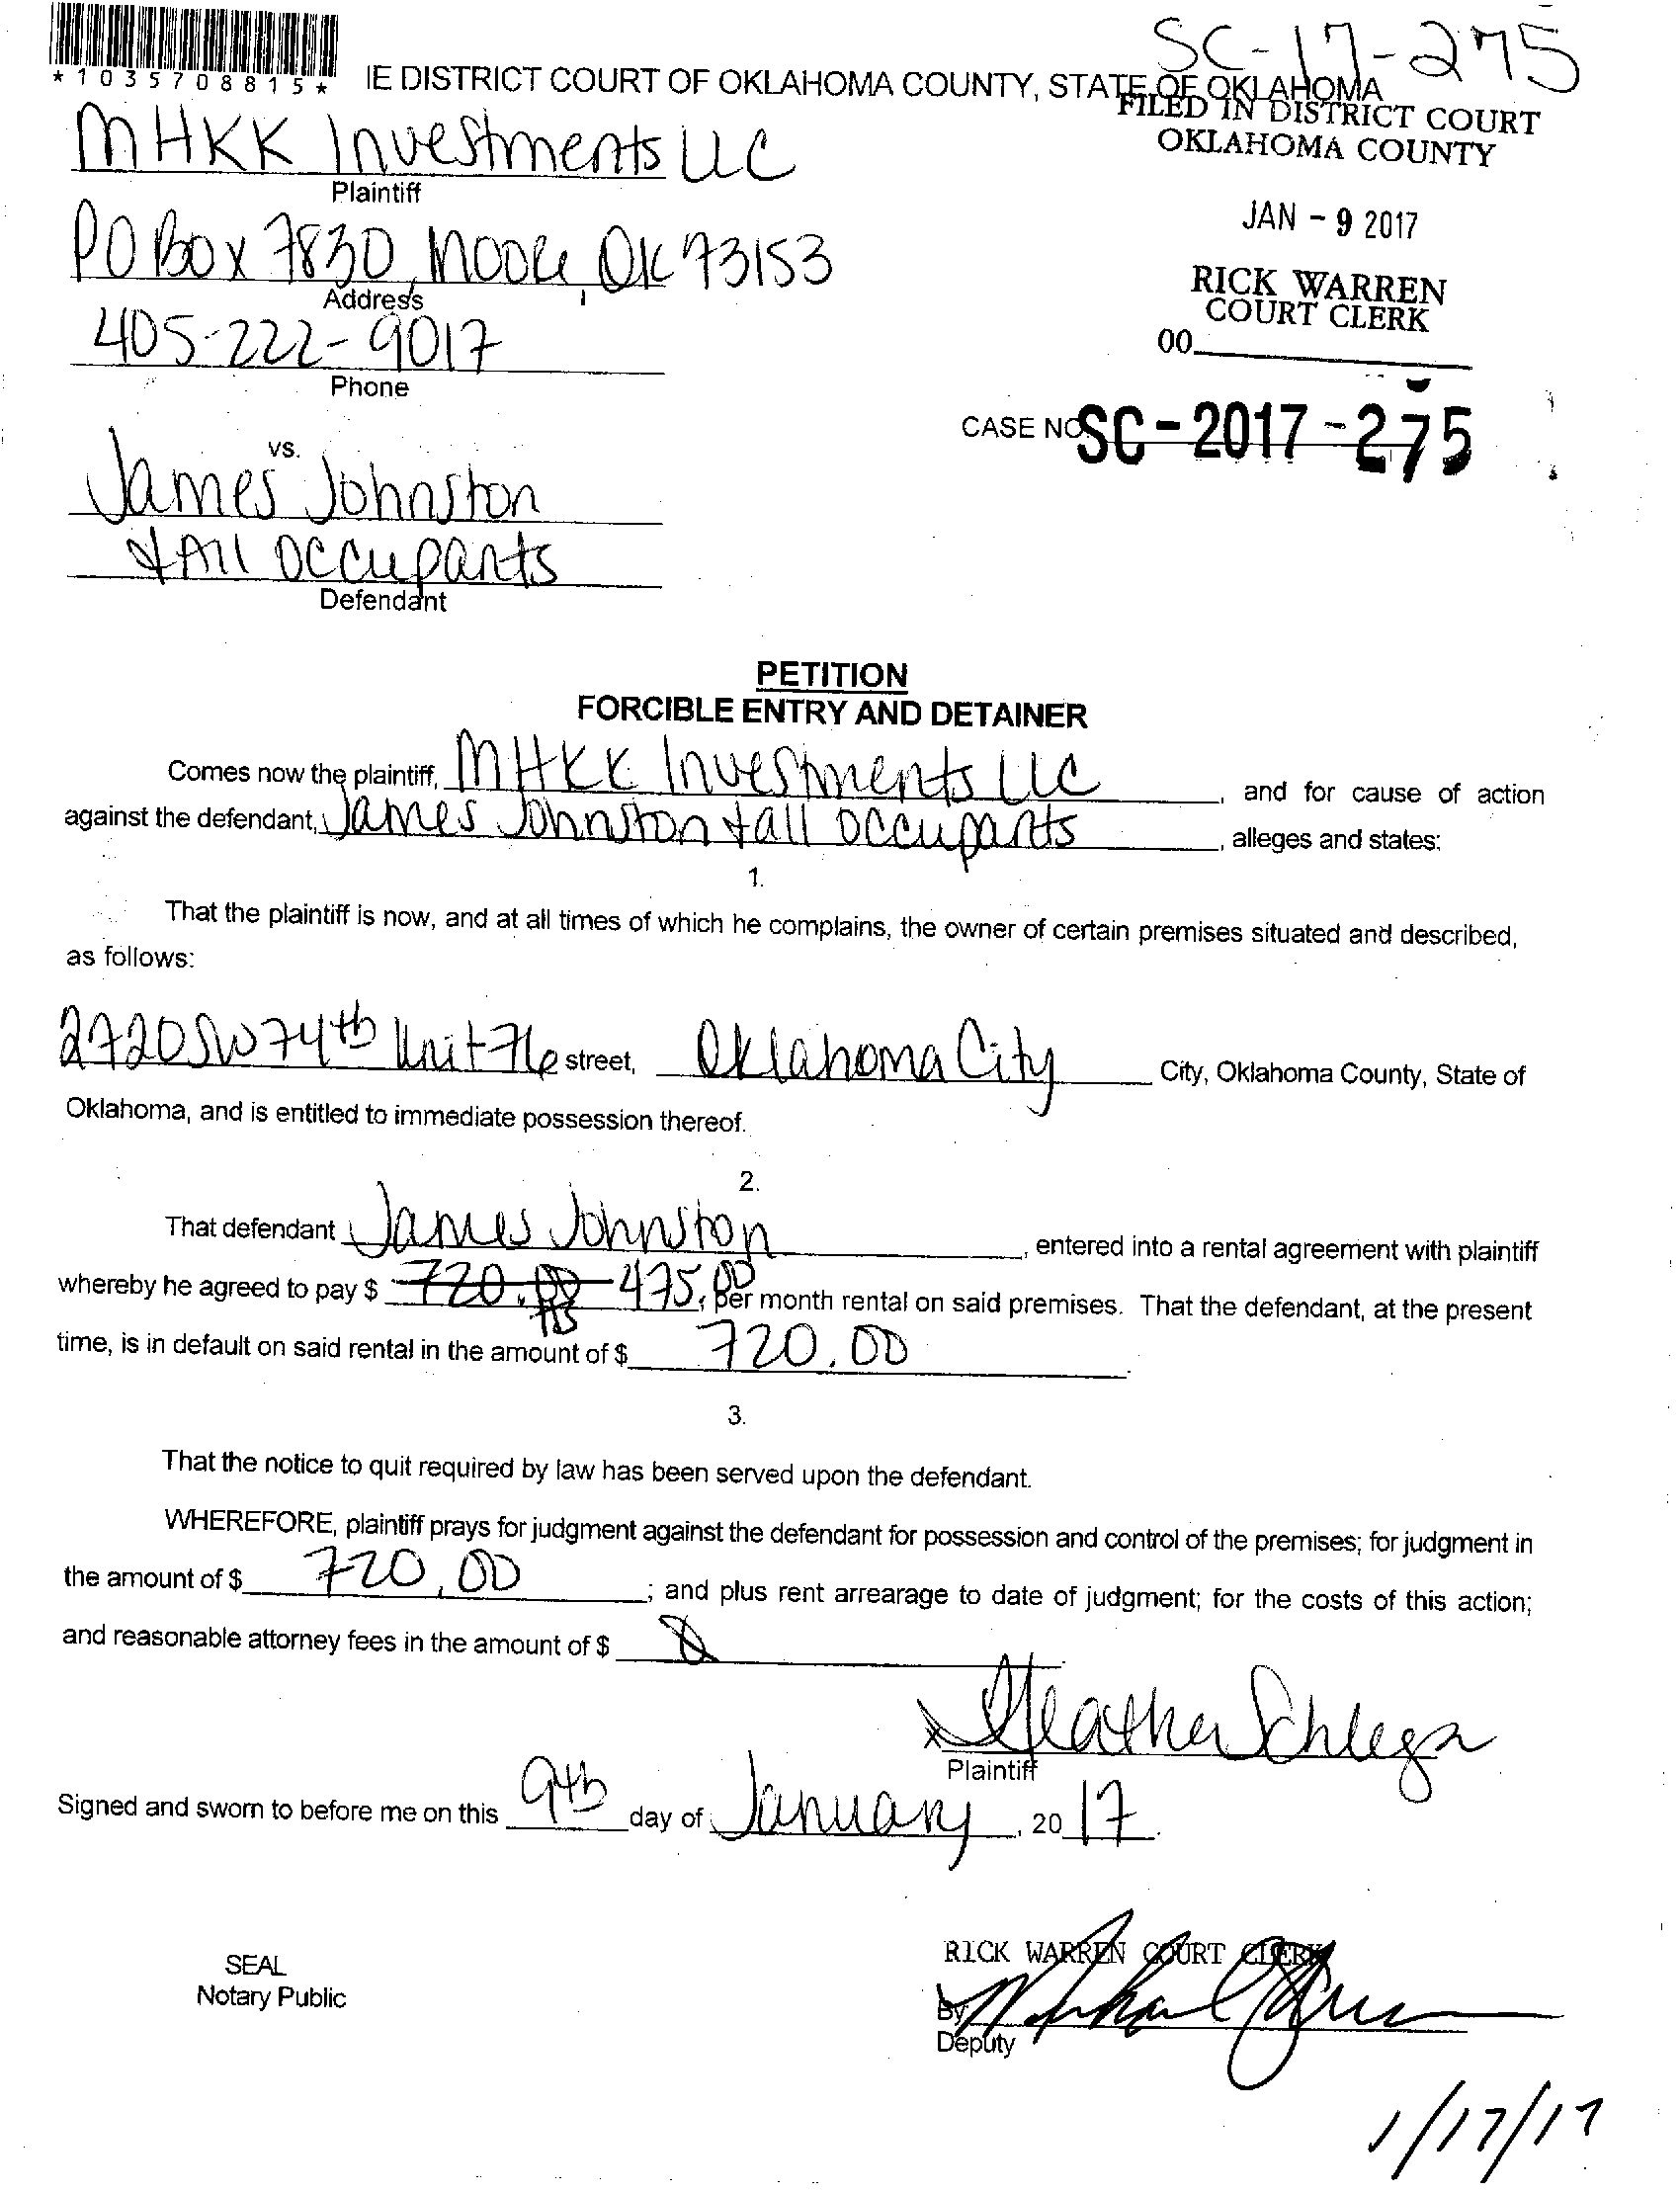 SC-17-275
*1035708815*
IE DISTRICT COURT OF OKLAHOMA COUNTY, STATE OF OKLAHOMA
FILED IN DISTRICT COURT
OKLAHOMA COUNTY
MHKK Investments LLC
Plaintiff
JAN - 9 2017
PO Box 7830, Moore, OK 73153
Address
RICK WARREN
COURT CLERK
405-222-9017
00
Phone
CASE NO. SC-2017-275
vs.
James Johnston
& All Occupants
Defendant
PETITION
FORCIBLE ENTRY AND DETAINER
Comes now the plaintiff, MHKK Investments LLC, and for cause of action
against the defendant, James Johnston & all occupants, alleges and states:
1.
That the plaintiff is now, and at all times of which he complains, the owner of certain premises situated and described,
as follows:
2720 SW 74th Unit 76 street, Oklahoma City City, Oklahoma County, State of
Oklahoma, and is entitled to immediate possession thereof.
2.
That defendant James Johnston, entered into a rental agreement with plaintiff
whereby he agreed to pay $ 720.00 475.00 per month rental on said premises. That the defendant, at the present
time, is in default on said rental in the amount of $ 720.00.
3.
That the notice to quit required by law has been served upon the defendant.
WHEREFORE, plaintiff prays for judgment against the defendant for possession and control of the premises; for judgment in
the amount of $ 720.00; and plus rent arrearage to date of judgment; for the costs of this action;
and reasonable attorney fees in the amount of $
x Heather
Plaintiff
Signed and sworn to before me on this 9th day of January, 20 17.
SEAL
Notary Public
RICK WARREN COURT CLERK
By
Deputy
1/17/17